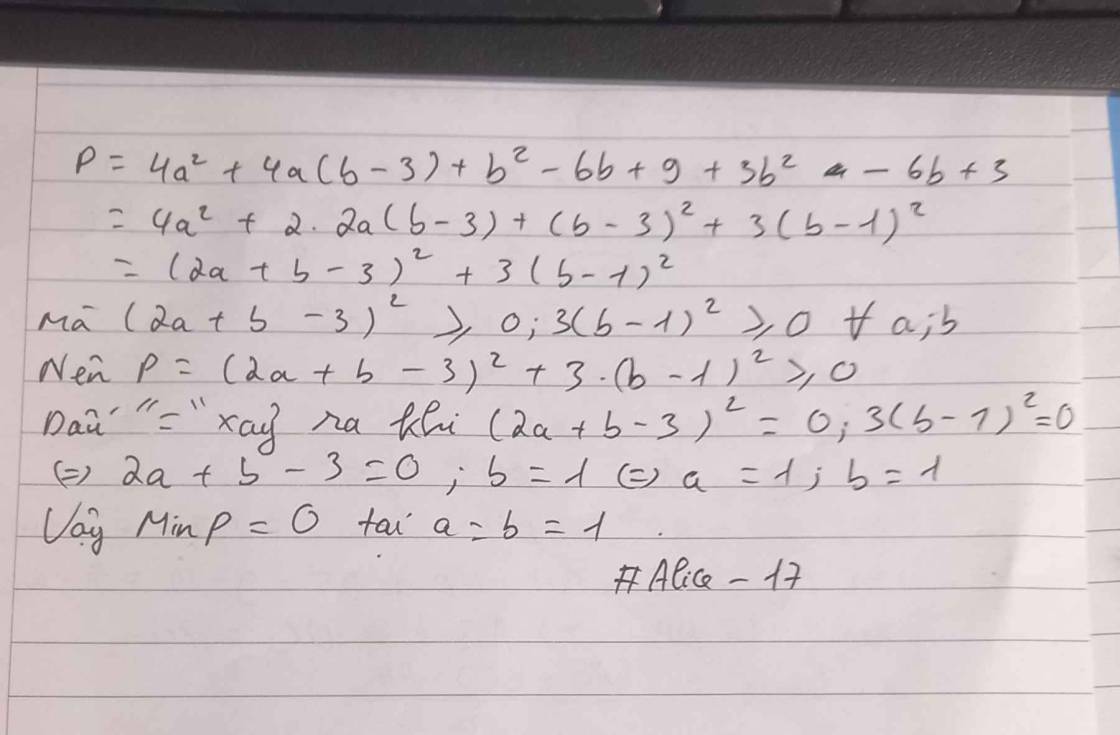 P = 4a² + 4a(b - 3) + b² - 6b + 9 + 3b² - 6b + 3
= 4a² + 2. 2a(b - 3) + (b - 3)² + 3(b - 1)²
= (2a + b - 3)² + 3(b - 1)²
Mà (2a + b - 3)² ⩾ 0; 3(b - 1)² ⩾ 0 ∀ a; b
Nên P = (2a + b - 3)² + 3.(b - 1)² ⩾ 0
Dấu "=" xảy ra khi (2a + b - 3)² = 0; 3(b - 1)² = 0
(=) 2a + b - 3 = 0 ; b = 1 (=) a = 1; b = 1
Vậy Min P = 0 tại a = b = 1 .
#Alice - 17